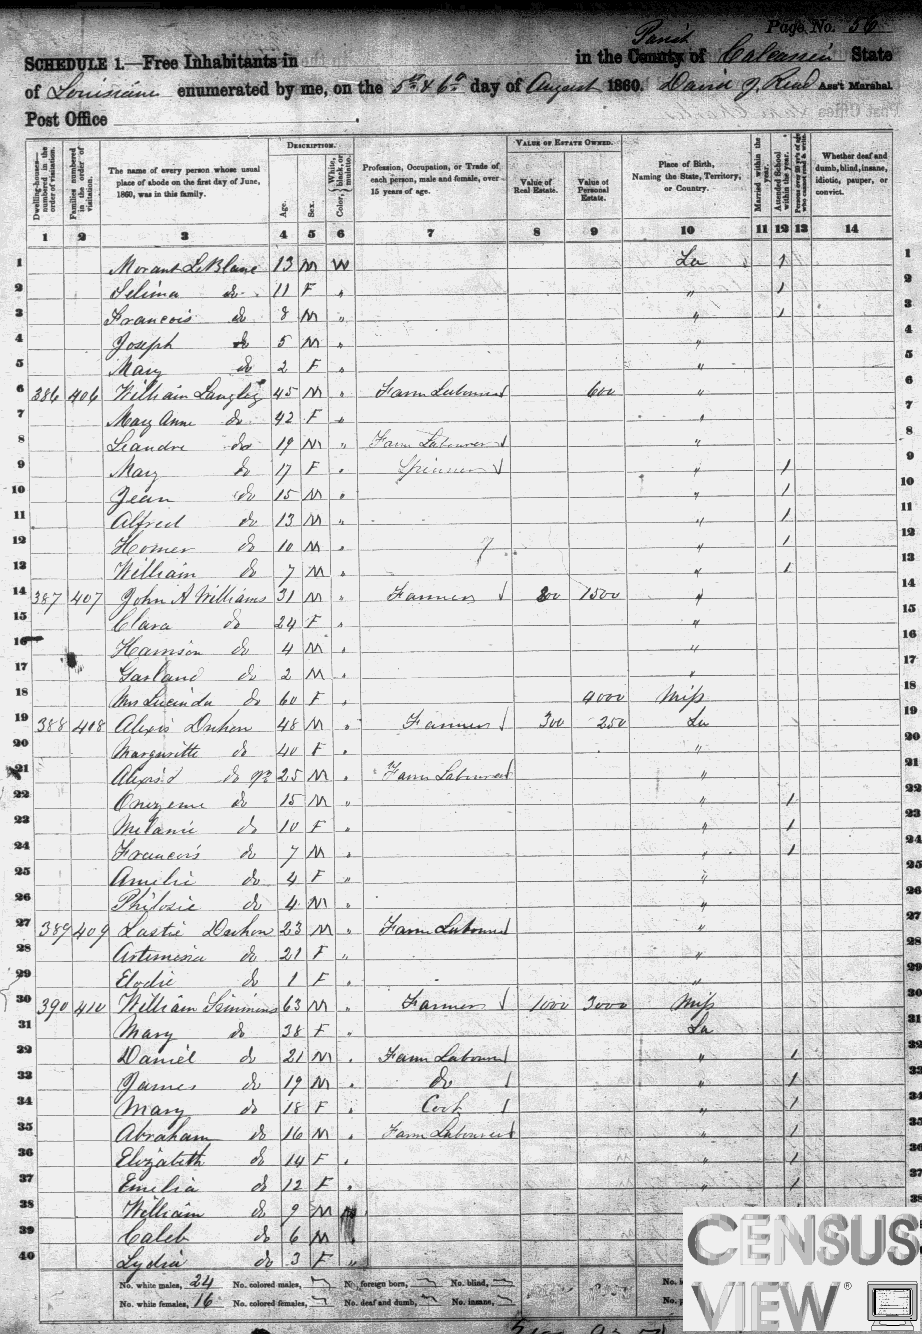 Page No. 56
SCHEDULE 1.—Free Inhabitants in in the County Parish of Calcasieu State
of Louisiana enumerated by me, on the 5th & 6th day of August 1860. David J. Read Ass't Marshal.
Post Office
DESCRIPTION. VALUE OF ESTATE OWNED.
Dwelling-houses—numbered in the order of visitation.
Families numbered in the order of visitation.
The name of every person whose usual place of abode on the first day of June, 1860, was in this family.
Age.
Sex.
Color, White, black, or mulatto.
Profession, Occupation, or Trade of each person, male and female, over 15 years of age.
Value of Real Estate.
Value of Personal Estate.
Place of Birth, Naming the State, Territory, or Country.
Married within the year.
Attended School within the year.
Whether deaf and dumb, blind, insane, idiotic, pauper, or convict.
1 2 3 4 5 6 7 8 9 10 11 12 13 14
1 Morant LeBlanc 13 M W La 1 1
2 Selima do 11 F " " 1 2
3 Francois do 8 M " " 1 3
4 Joseph do 5 M " " 4
5 Mary do 2 F " " 5
6 386 406 William Langley 45 M " Farm Labourer 600 " 6
7 Mary Anne do 42 F " " 7
8 Leandre do 19 M " Farm Labourer " 8
9 Mary do 17 F " Spinner " 1 9
10 Jean do 15 M " " 1 10
11 Alfred do 13 M " " 1 11
12 Homer do 10 M " 7 " 1 12
13 William do 7 M " " 1 13
14 387 407 John A Williams 31 M " Farmer 800 1500 " 14
15 Clara do 24 F " " 15
16 Harrison do 4 M " " 16
17 Garland do 2 M " " 17
18 Mrs Lucinda do 60 F " 4000 Miss 18
19 388 408 Alexis Duhon 48 M " Farmer 300 250 La 19
20 Margueritte do 40 F " " 20
21 Alexis do Jr 25 M " Farm Labourer " 21
22 Onezeme do 15 M " " 1 22
23 Melanie do 10 F " " 1 23
24 Francois do 7 M " " 1 24
25 Amelie do 4 F " " 25
26 do 4 M " " 26
27 389 409 Lastie Duhon 23 M " Farm Labourer " 27
28 Artemisia do 21 F " " 28
29 Elodie do 1 F " " 29
30 390 410 William Simmins 63 M " Farmer 1000 3000 Miss 30
31 Mary do 38 F " La 31
32 Daniel do 21 M " Farm Labourer " 1 32
33 James do 19 M " do " 1 33
34 Mary do 18 F " Cook " 1 34
35 Abraham do 16 M " Farm Labourer " 1 35
36 Elizabeth do 14 F " " 1 36
37 Emelia do 12 F " " 1 37
38 William do 9 M 38
39 Caleb do 6 M "
40 Lydia do 3 F "
No. white males, 24 No. colored males, No. foreign born, No. blind,
No. white females, 16 No. colored females, No. deaf and dumb, No. insane,
CENSUS
VIEW®